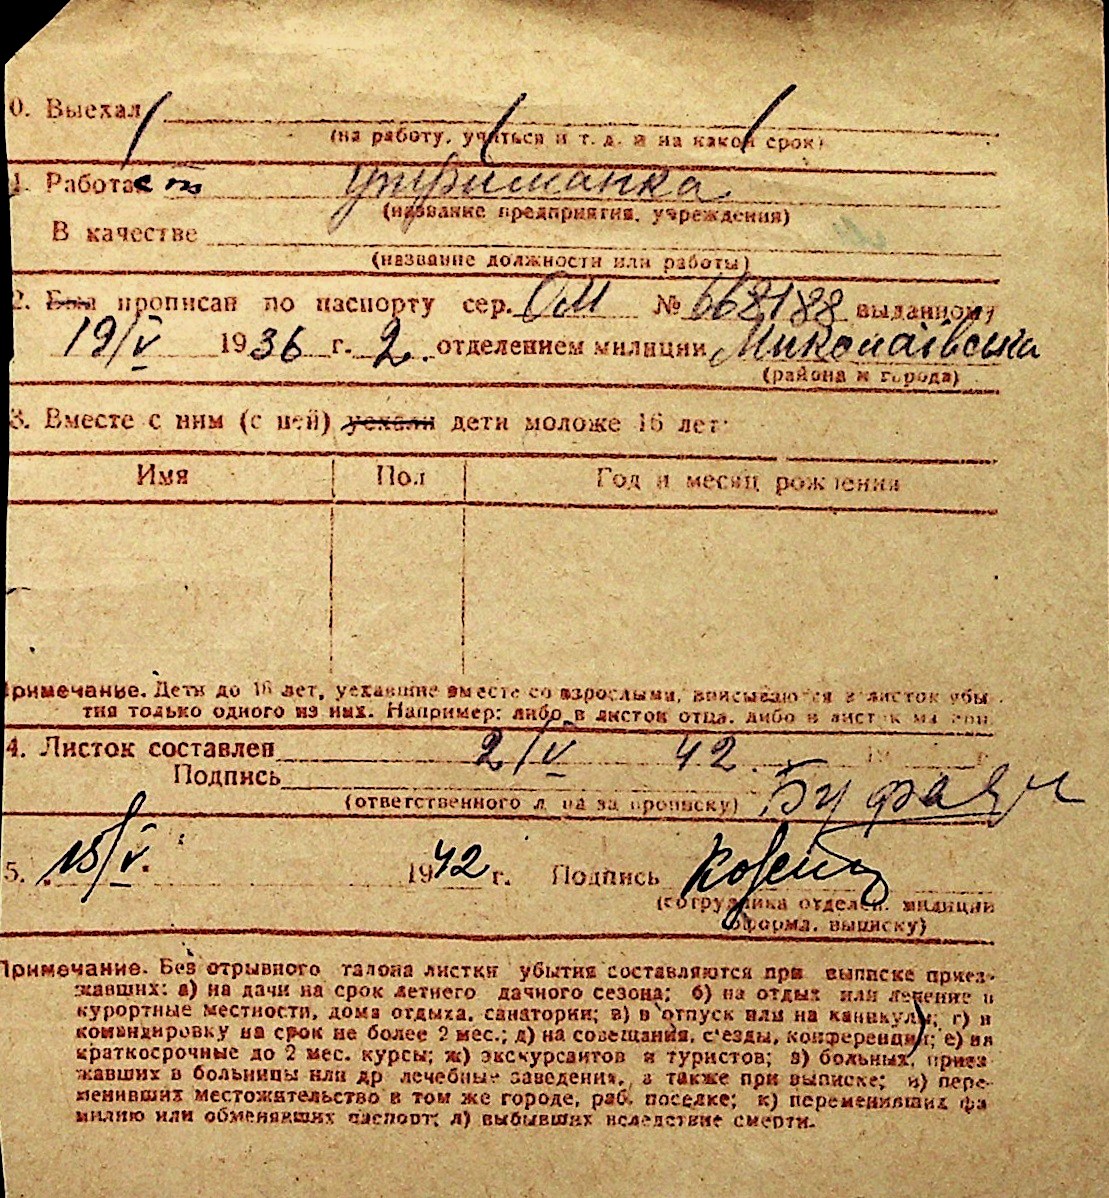 0. Выехал
(на работу, учиться и т. д. и на какой срок)
1. Работает утриманка
(название предприятия, учреждения)
В качестве
(название должности или работы)
2. Был прописан по паспорту сер. ОМ № 662188 выданному
19/V 1936 г. 2 отделением милиции Миколаївськ
(района и города)
3. Вместе с ним (с ней) уехали дети моложе 16 лет:
Имя Пол Год и месяц рождения
Примечание. Дети до 16 лет, уехавшие вместе со взрослыми, вписываются в листок убы-
тия только одного из них. Например: либо в листок отца, либо в листок матери.
4. Листок составлен 2/V 42
Подпись
(ответственного лица за прописку)
5. 15/V. 1942 г. Подпись
(сотрудника отделен. милиции
оформл. выписку)
Примечание. Без отрывного талона листки убытия составляются при выписке приез-
жавших: а) на дачи на срок летнего дачного сезона; б) на отдых или лечение в
курортные местности, дома отдыха, санатории; в) в отпуск или на каникулы; г) в
командировку на срок не более 2 мес.; д) на совещания, съезды, конференции; е) на
краткосрочные до 2 мес. курсы; ж) экскурсантов и туристов; з) больных, приез-
жавших в больницы или др лечебные заведения, а также при выписке; и) пере-
менивших местожительство в том же городе, раб. поселке; к) переменивших фа
милию или обменявших паспорт; л) выбывших вследствие смерти.